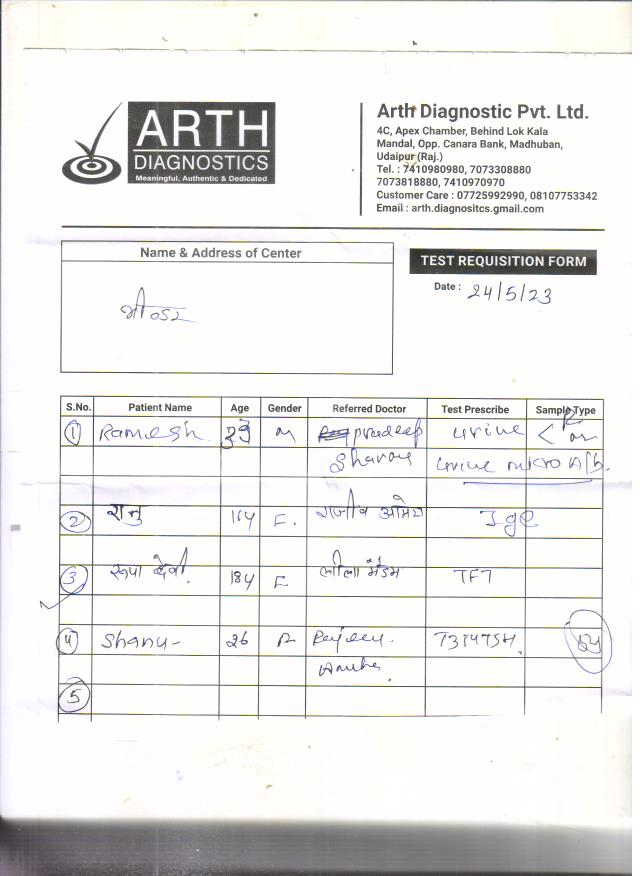 ARTH
DIAGNOSTICS
Meaningful, Authentic & Dedicated
Arth Diagnostic Pvt. Ltd.
4C, Apex Chamber, Behind Lok Kala
Mandal, Opp. Canara Bank, Madhuban,
Udaipur (Raj.)
Tel. : 7410980980, 7073308880
7073818880, 7410970970
Customer Care : 07725992990, 08107753342
Email : arth.diagnositcs.gmail.com
Name & Address of Center
TEST REQUISITION FORM
Date : 24/5/23
S.No. Patient Name Age Gender Referred Doctor Test Prescribe Sample Type
1 Ramesh 39 M pradeep urine
urine micro Alb.
2 F. IgE
3 रूपा देवी 18y F लीला मैडम TFT
4 Shanu 26 T3T4TSH
5